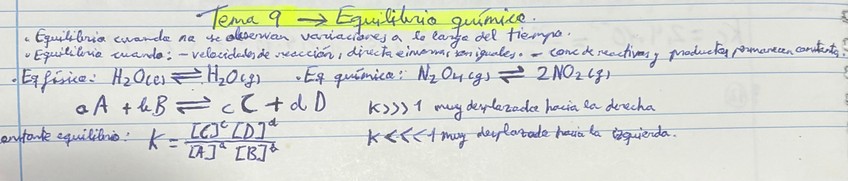 Tema 9 → Equilibrio químico.
· Equilibrio cuando no se observan variaciones a lo largo del tiempo.
· Equilibrio cuando: - velocidades de reacción, directa e inversa son iguales. - conc de reactivos y productos permanecen constantes.
· Eq física: H₂O(l) ⇌ H₂O(g) · Eq química: N₂O₄(g) ⇌ 2NO₂(g)
aA + bB ⇌ cC + dD K>>>1 muy desplazada hacia la derecha
onstante equilibrio: K = [C]ᶜ [D]ᵈ / [A]ᵃ [B]ᵇ K<<<1 muy desplazada hacia la izquierda.